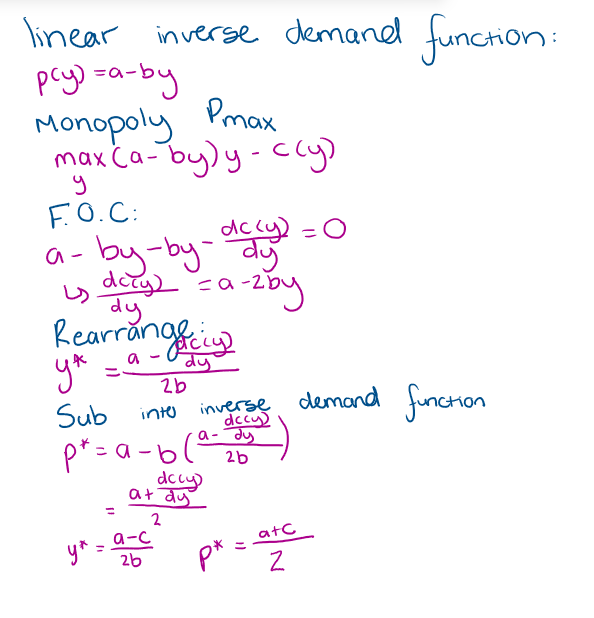 linear inverse demand function:
p(y) = a-by
Monopoly Pmax
max (a-by)y - c(y)
y
F.O.C:
a - by - by - dc(y)/dy = 0
↳ dc(y)/dy = a-2by
Rearrange:
y* = (a - dc(y)/dy)/2b
Sub into inverse demand function
p* = a - b((a - dc(y)/dy)/2b)
= (a + dc(y)/dy)/2
y* = (a-c)/2b p* = (a+c)/2